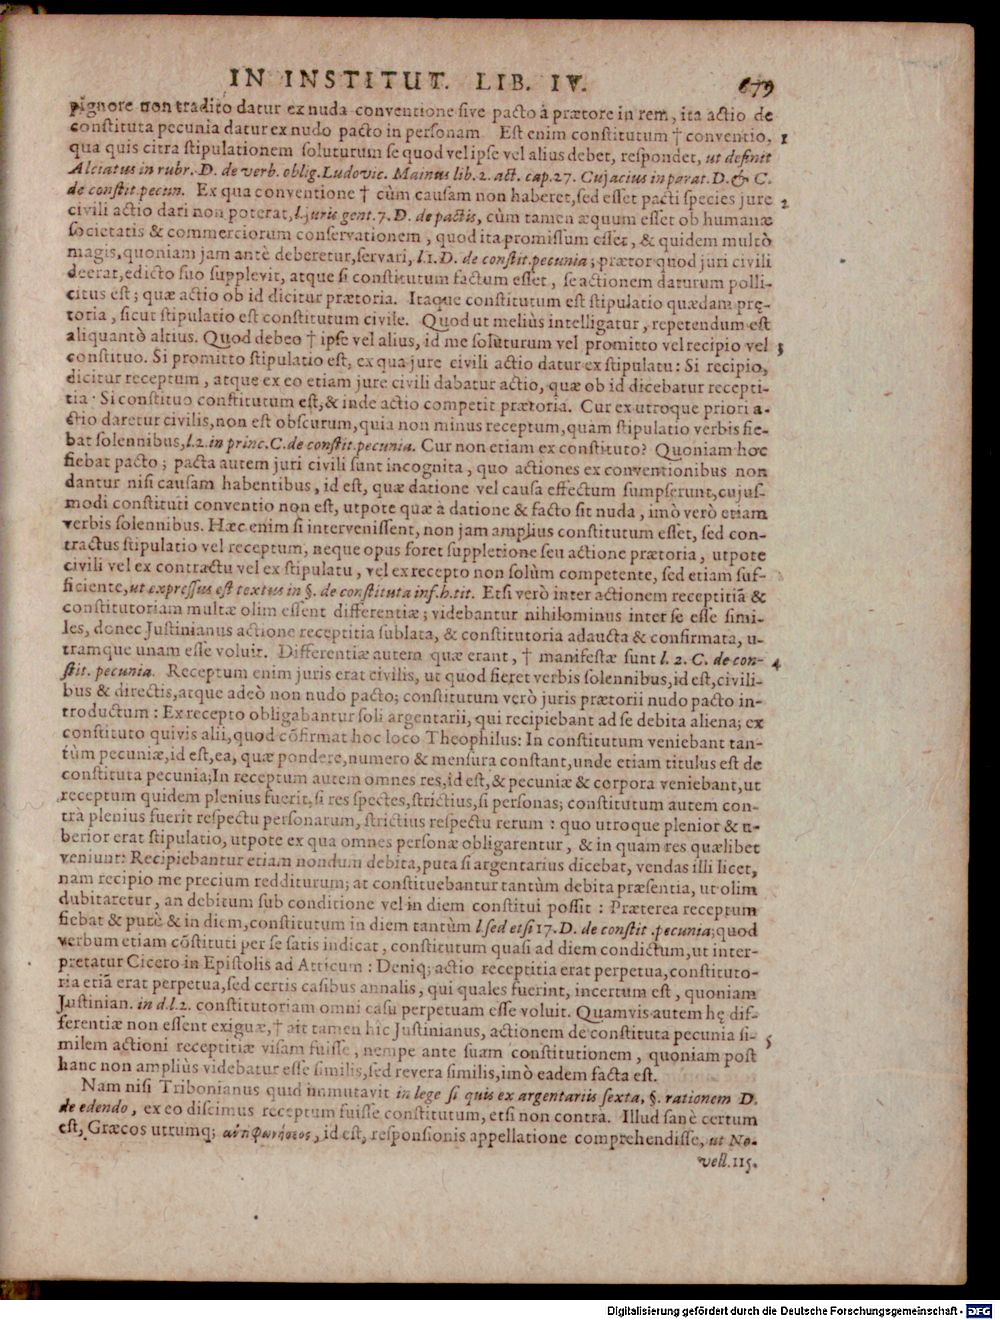 IN INSTITUT. LIB. IV. 679
pignore non tradito datur ex nuda conventione sive pacto à prætore in rem, ita actio de
constituta pecunia datur ex nudo pacto in personam Est enim constitutum † conventio, 1
qua quis citra stipulationem soluturum se quod vel ipse vel alius debet, respondet, ut definit
Alciatus in rubr. D. de verb. oblig. Ludovic. Mainus lib. 2. act. cap. 27. Cujacius in parat. D. & C.
de constit. pecun. Ex qua conventione † cùm causam non haberet, sed esset pacti species jure 2
civili actio dari non poterat, l. juris gent. 7. D. de pactis, cùm tamen æquum esset ob humanæ
societatis & commerciorum conservationem, quod ita promissum esset, & quidem multò
magis, quoniam jam antè deberetur, servari, l. 1. D. de constit. pecunia; prætor quod juri civili
deerat, edicto suo supplevit, atque si constitutum factum esset, se actionem daturum polli-
citus est; quæ actio ob id dicitur prætoria. Itaque constitutum est stipulatio quædam prę-
toria, sicut stipulatio est constitutum civile. Quod ut meliùs intelligatur, repetendum est
aliquantò altius. Quod debeo † ipse vel alius, id me soluturum vel promitto vel recipio vel 3
constituo. Si promitto stipulatio est, ex qua jure civili actio datur ex stipulatu: Si recipio,
dicitur receptum, atque ex eo etiam jure civili dabatur actio, quæ ob id dicebatur recepti-
tia. Si constituo constitutum est, & inde actio competit prætoria. Cur ex utroque priori a-
ctio daretur civilis, non est obscurum, quia non minus receptum, quàm stipulatio verbis fie-
bat solennibus, l. 2. in princ. C. de constit. pecunia. Cur non etiam ex constituto? Quoniam hoc
fiebat pacto; pacta autem juri civili sunt incognita, quo actiones ex conventionibus non
dantur nisi causam habentibus, id est, quæ datione vel causa effectum sumpserunt, cujus-
modi constituti conventio non est, utpote quæ à datione & facto sit nuda, imò verò etiam
verbis solennibus. Hæc enim si intervenissent, non jam amplius constitutum esset, sed con-
tractus stipulatio vel receptum, neque opus foret suppletione seu actione prætoria, utpote
civili vel ex contractu vel ex stipulatu, vel ex recepto non solùm competente, sed etiam suf-
ficiente, ut expressus est textus in §. de constituta inf. h. tit. Etsi verò inter actionem receptitiã &
constitutoriam multæ olim essent differentiæ; videbantur nihilominus inter se esse simi-
les, donec Justinianus actione receptitia sublata, & constitutoria adaucta & confirmata, u-
tramque unam esse voluit. Differentiæ autem quæ erant, † manifestæ sunt l. 2. C. de con- 4
stit. pecunia. Receptum enim juris erat civilis, ut quod fieret verbis solennibus, id est, civili-
bus & directis, atque adeò non nudo pacto; constitutum verò juris prætorii nudo pacto in-
troductum: Ex recepto obligabantur soli argentarii, qui recipiebant ad se debita aliena; ex
constituto quivis alii, quod cõfirmat hoc loco Theophilus: In constitutum veniebant tan-
tùm pecuniæ, id est, ea, quæ pondere, numero & mensura constant, unde etiam titulus est de
constituta pecunia; In receptum autem omnes res, id est, & pecuniæ & corpora veniebant, ut
receptum quidem plenius fuerit, si res spectes, strictius, si personas; constitutum autem con-
trà plenius fuerit respectu personarum, strictius respectu rerum: quo utroque plenior & u-
berior erat stipulatio, utpote ex qua omnes personæ obligarentur, & in quam res quælibet
veniunt: Recipiebantur etiam nondum debita, puta si argentarius dicebat, vendas illi licet,
nam recipio me precium redditurum; at constituebantur tantùm debita præsentia, ut olim
dubitaretur, an debitum sub conditione vel in diem constitui possit: Præterea receptum
fiebat & purè & in diem, constitutum in diem tantùm l. sed etsi 17. D. de constit. pecunia; quod
verbum etiam cõstituti per se satis indicat, constitutum quasi ad diem condictum, ut inter-
pretatur Cicero in Epistolis ad Atticum: Deniq; actio receptitia erat perpetua, constituto-
ria etiã erat perpetua, sed certis casibus annalis, qui quales fuerint, incertum est, quoniam
Justinian. in d. l. 2. constitutoriam omni casu perpetuam esse voluit. Quamvis autem hę dif-
ferentiæ non essent exiguæ, † ait tamen hîc Justinianus, actionem de constituta pecunia si- 5
milem actioni receptitiæ visam fuisse, nempe ante suam constitutionem, quoniam post
hanc non ampliùs videbatur esse similis, sed revera similis, imò eadem facta est.
Nam nisi Tribonianus quid immutavit in lege si quis ex argentariis sexta, §. rationem D.
de edendo, ex eo discimus receptum fuisse constitutum, etsi non contrà. Illud sanè certum
est, Græcos utrumq; ἀντιφωνήσεως, id est, responsionis appellatione comprehendisse, ut No-
vell. 115.
Digitalisierung gefördert durch die Deutsche Forschungsgemeinschaft - DFG